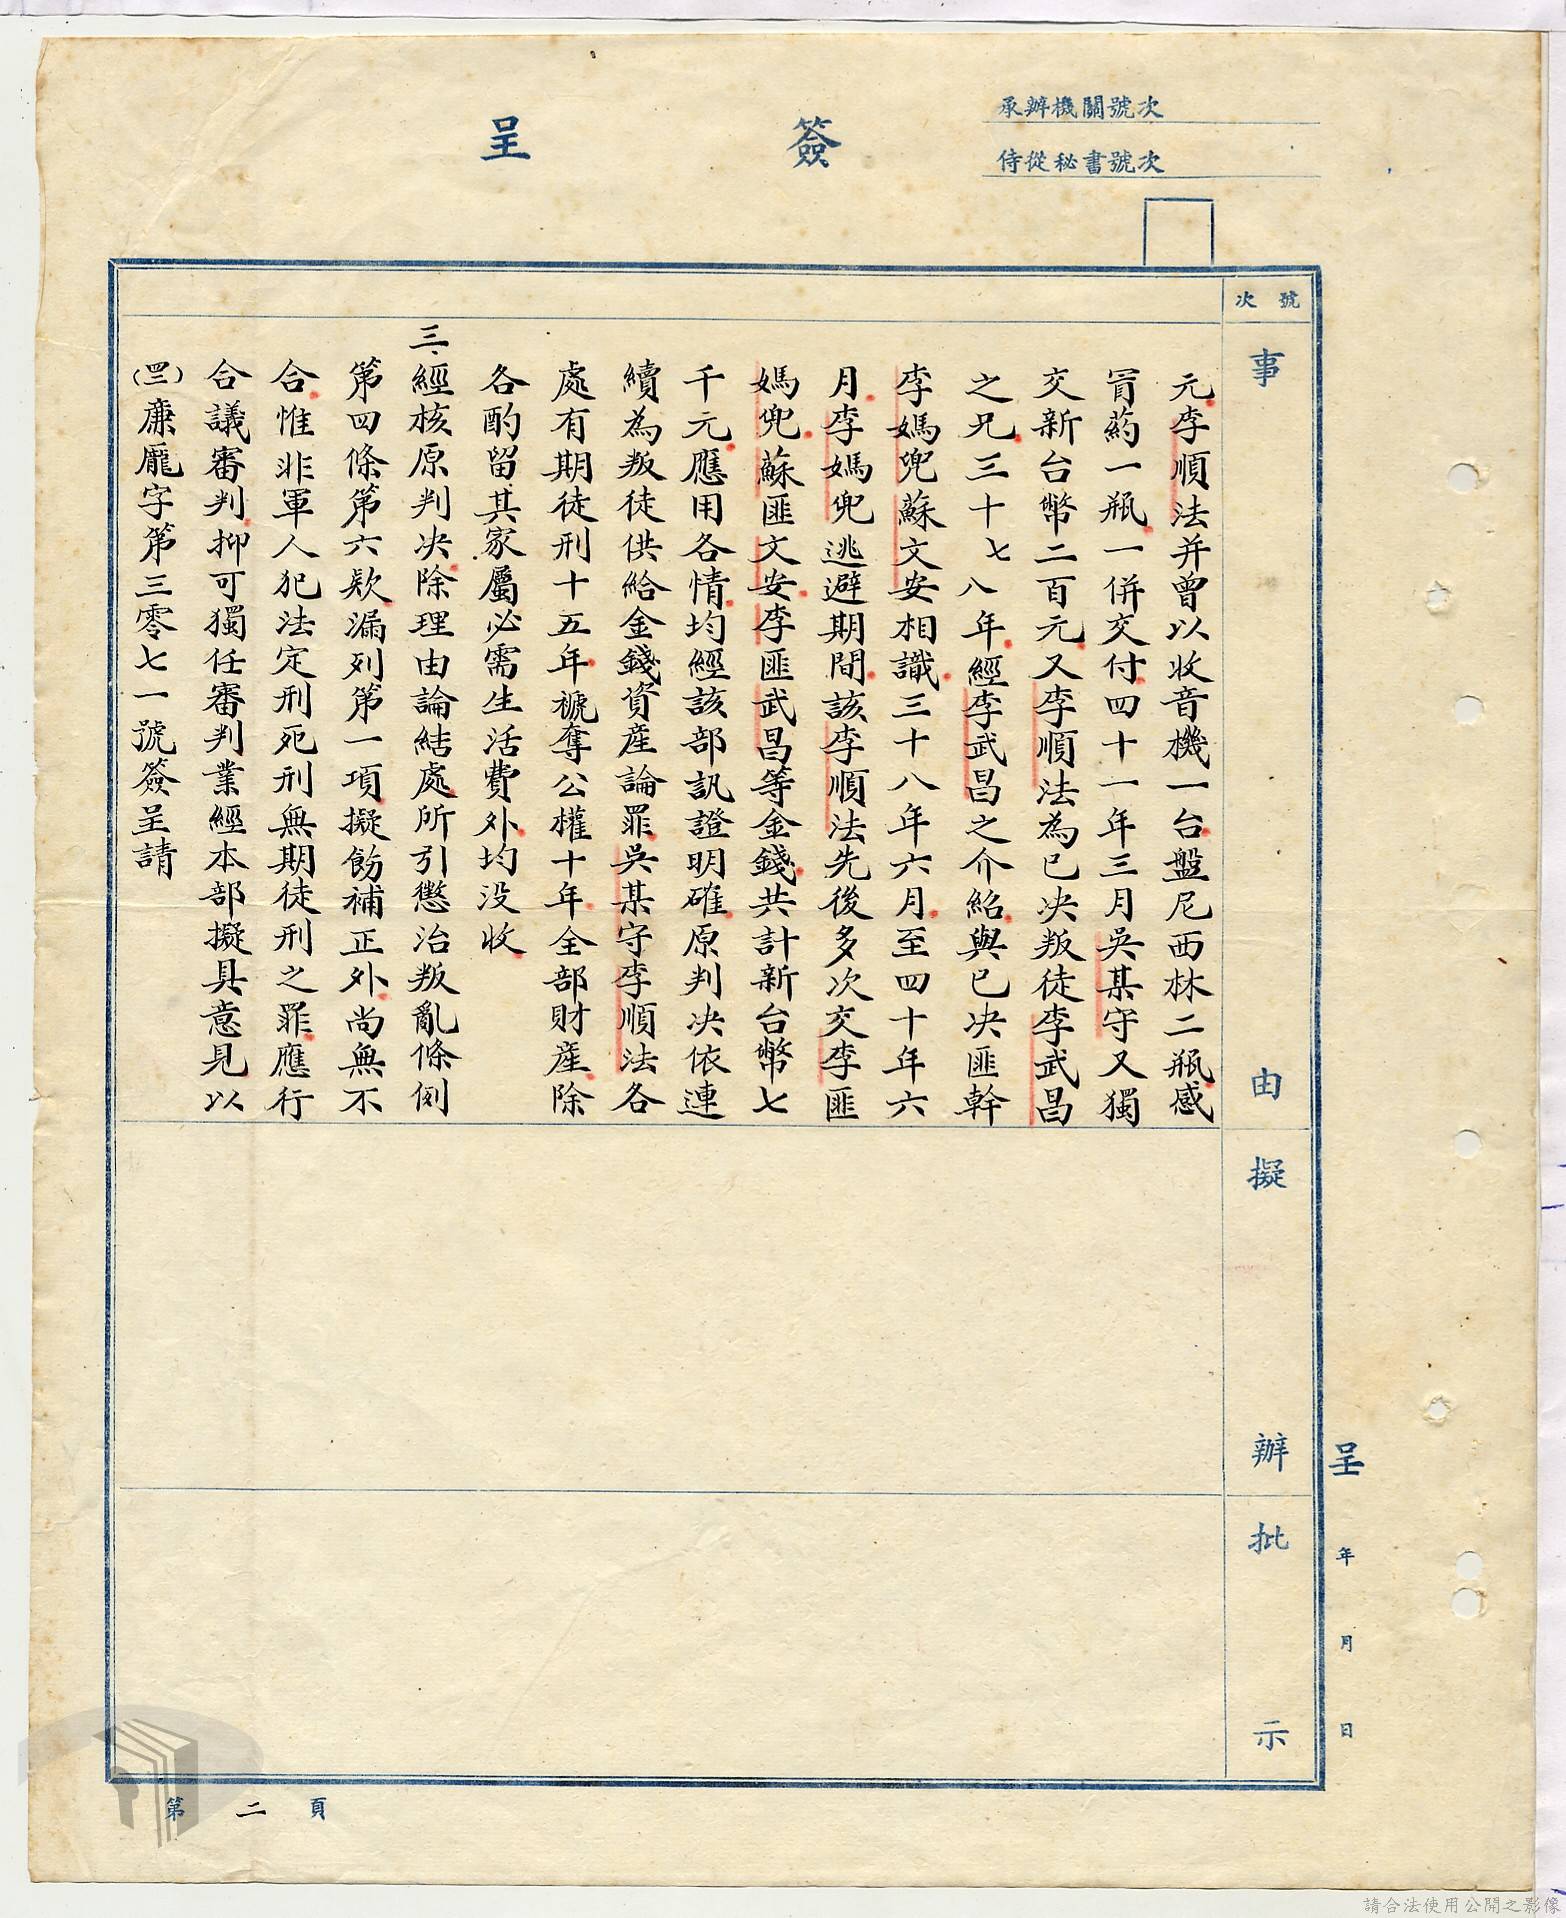 簽呈
承辦機關號次
侍從秘書號次
號次
事由
擬辦
批示
元李順法并曾以收音機一台盤尼西林二瓶感
冒葯一瓶一併交付四十一年三月吳某守又獨
交新台幣二百元又李順法為已决叛徒李武昌
之兄三十七八年經李武昌之介紹與已决匪幹
李媽兜蘇文安相識三十八年六月至四十年六
月李媽兜逃避期間該李順法先後多次交李匪
媽兜蘇匪文安李匪武昌等金錢共計新台幣七
千元應用各情均經該部訊證明確原判决依連
續為叛徒供給金錢資產論罪吳某守李順法各
處有期徒刑十五年褫奪公權十年全部財產除
各酌留其家屬必需生活費外均没收
三、經核原判决除理由論結處所引懲治叛亂條例
第四條第六欵漏列第一項擬飭補正外尚無不
合惟非軍人犯法定刑死刑無期徒刑之罪應行
合議審判抑可獨任審判業經本部擬具意見以
(四二)廉龐字第三零七一號簽呈請
呈 年 月 日
第二頁
請合法使用公開之影像